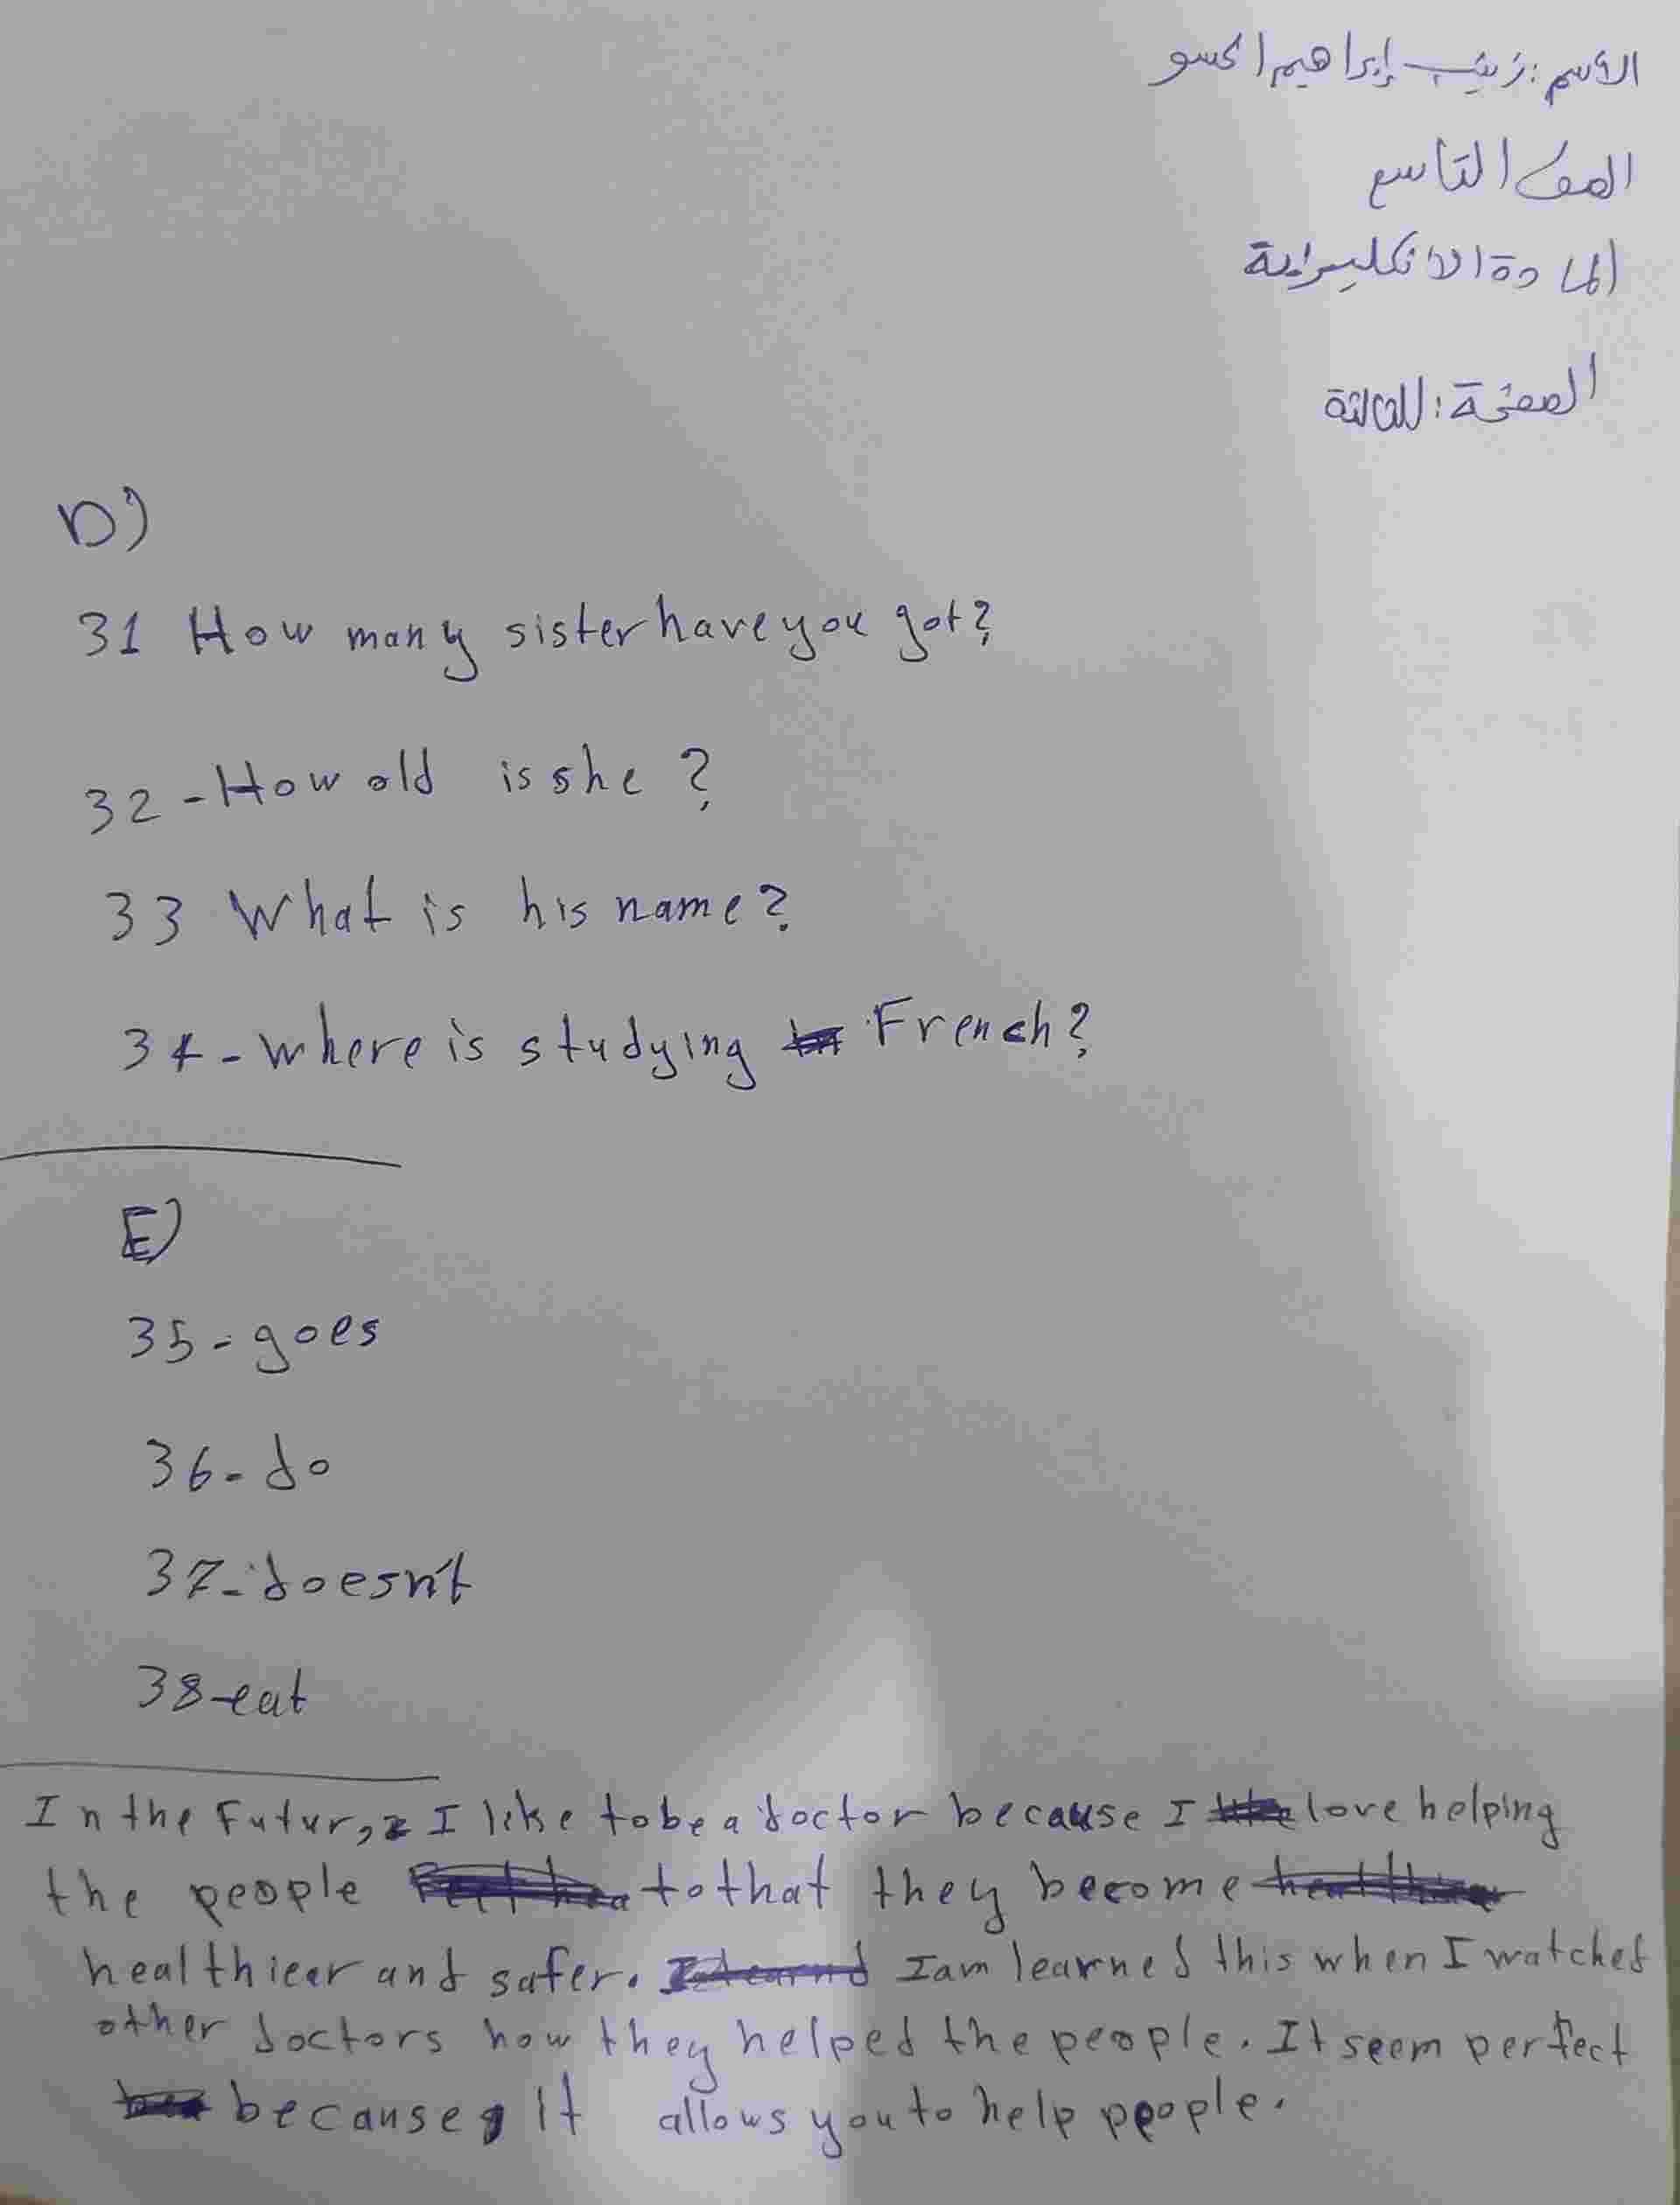 الاسم: زينب إبراهيم الحسو
الصف التاسع
المادة الانكليزية
الصفحة: الثالثة
D)
31 How many sister have you got?
32 - How old is she ?
33 What is his name?
34 - where is studying French?
E)
35 - goes
36 - do
37 - doesn't
38 - eat
In the Futur, I like to be a doctor because I love helping
the people to that they become
healthieer and safer. I am learned this when I watched
other doctors how they helped the people. It seem perfect
because it allows you to help people.